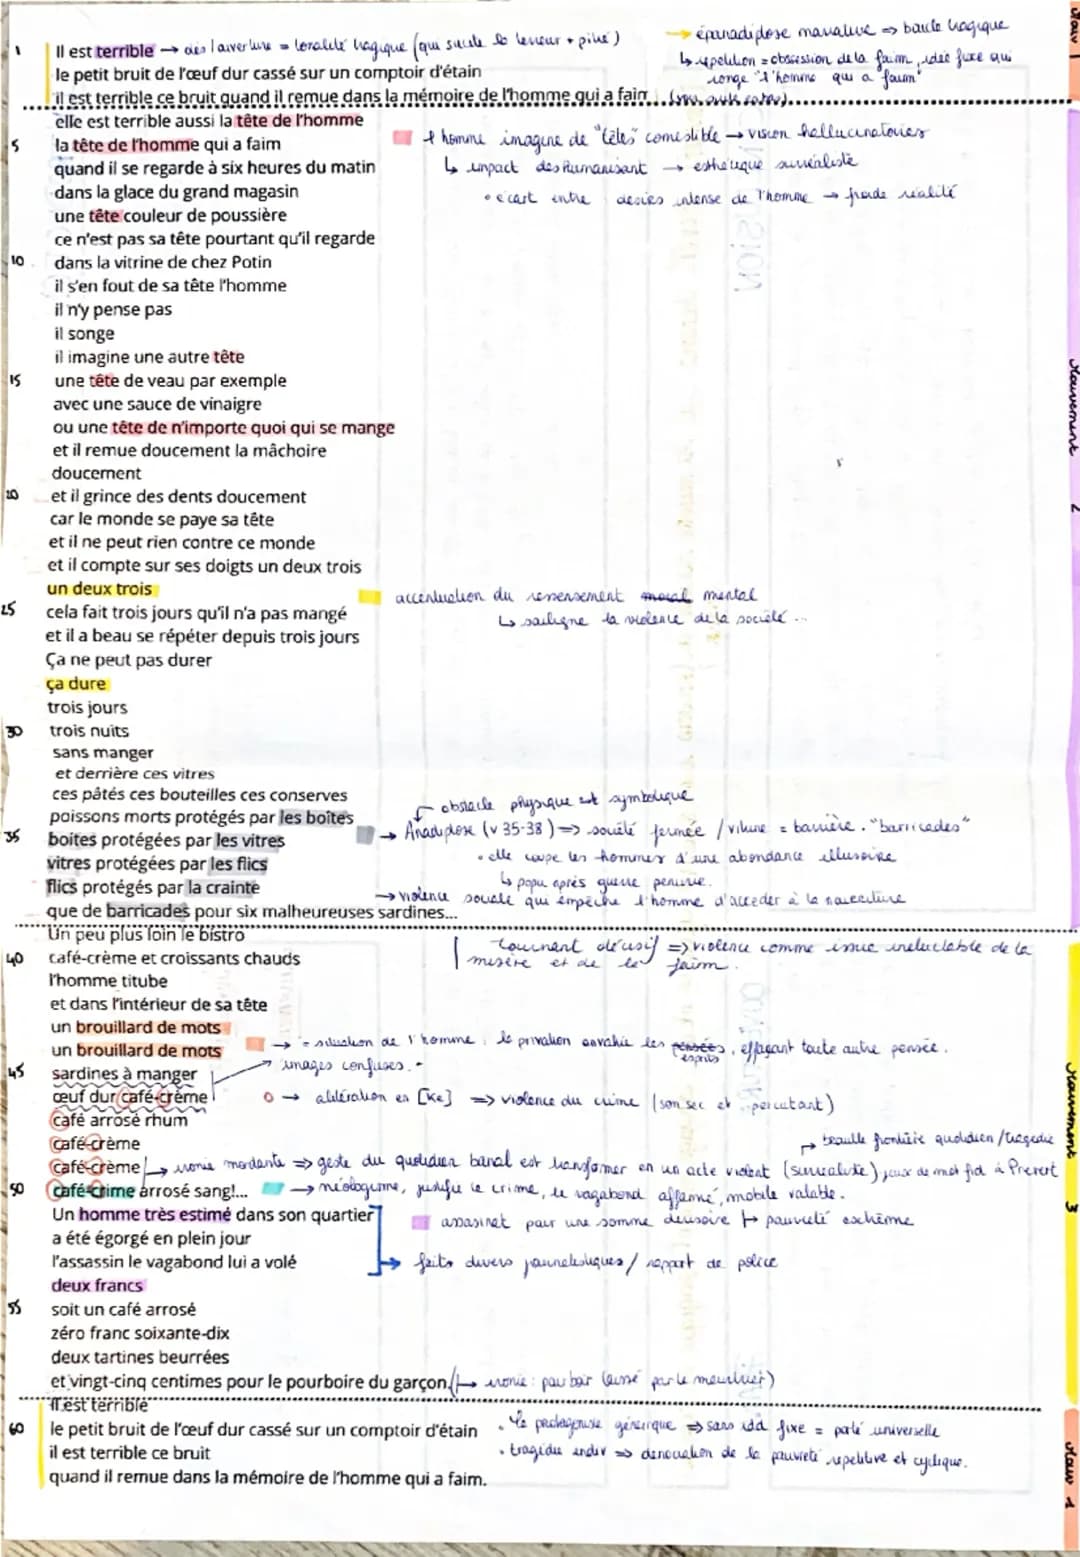 1 Il est terrible → dès l'ouverture = tonalité tragique (qui suscite la terreur + pitié)
→ épanadiplose narrative => boucle tragique
le petit bruit de l'œuf dur cassé sur un comptoir d'étain
↳ répétition = obsession de la faim, idée fixe qui
ronge "l'homme qui a faim"
il est terrible ce bruit quand il remue dans la mémoire de l'homme qui a faim
elle est terrible aussi la tête de l'homme
5 la tête de l'homme qui a faim
l'homme imagine de "têtes" comestible → vision hallucinatoires
quand il se regarde à six heures du matin
↳ impact déshumanisant → esthétique surréaliste
dans la glace du grand magasin
• écart entre desirs intense de l'homme → froide réalité
une tête couleur de poussière
ce n'est pas sa tête pourtant qu'il regarde
10 dans la vitrine de chez Potin
il s'en fout de sa tête l'homme
il n'y pense pas
il songe
il imagine une autre tête
15 une tête de veau par exemple
avec une sauce de vinaigre
ou une tête de n'importe quoi qui se mange
et il remue doucement la mâchoire
doucement
20 et il grince des dents doucement
car le monde se paye sa tête
et il ne peut rien contre ce monde
et il compte sur ses doigts un deux trois
un deux trois
accentuation du ressassement moral mental
25 cela fait trois jours qu'il n'a pas mangé
↳ souligne la violence de la société ...
et il a beau se répéter depuis trois jours
Ça ne peut pas durer
ça dure
trois jours
30 trois nuits
sans manger
et derrière ces vitres
ces pâtés ces bouteilles ces conserves
obstacle physique et symbolique
poissons morts protégés par les boîtes
→ Anadiplose (v 35-38) => société fermée / vitrine = barrière. "barricades"
35 boîtes protégées par les vitres
vitres protégées par les flics
• elle coupe les hommes d'une abondance illusoire
↳ popu après guerre penurie.
flics protégés par la crainte
→ violence sociale qui empêche l'homme d'acceder à la nourriture
que de barricades pour six malheureuses sardines...
Un peu plus loin le bistro
tournant décisif => violence comme issue ineluctable de la
40 café-crème et croissants chauds
misère et de la faim.
l'homme titube
et dans l'intérieur de sa tête
un brouillard de mots
un brouillard de mots
→ = situation de l'homme : la privation envahie les pensées esprits, effaçant toute autre pensée.
45 sardines à manger
images confuses.
œuf dur café-crème
→ allitération en [ke] => violence du crime (son sec et percutant)
café arrosé rhum
café-crème
→ brouille frontière quotidien / tragédie
café-crème
↳ ironie mordante => geste du quotidien banal est transformer en un acte violent (surréaliste) jeux de mot fid à Prévert
50 café-crime arrosé sang!...
→ néologisme, justifie le crime, le vagabond affamé, mobile valable.
Un homme très estimé dans son quartier
assasinat pour une somme derisoire ↦ pauvreté extrême
a été égorgé en plein jour
l'assassin le vagabond lui a volé
→ faits divers journalistiques / rapport de police
deux francs
55 soit un café arrosé
zéro franc soixante-dix
deux tartines beurrées
et vingt-cinq centimes pour le pourboire du garçon. (↦ ironie : pourboir laissé par le meurtrier)
Il est terrible
60 le petit bruit de l'œuf dur cassé sur un comptoir d'étain
• Le protagoniste générique => sans fixe = porté universelle
il est terrible ce bruit
• tragédie => dénonciation de la pauvreté répétitive et cyclique.
quand il remue dans la mémoire de l'homme qui a faim.
Mouvement 2
Mouvement 3